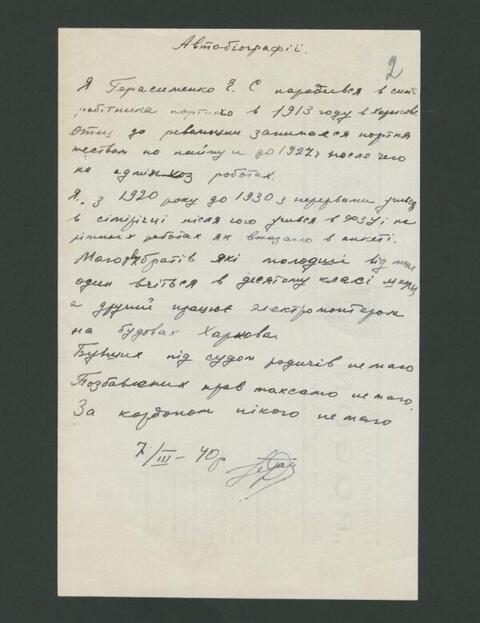 Автобіографії.
2
Я Герасименко Е. С народився в сімї
робітника портного в 1913 году в Харькове.
Отец до революции занимался портня
жеством по найму и до 1927г после чего
на адмхоз роботах.
Я з 1920 року до 1930 з перервами учився
в сімірічці після чого учився в ФЗУ і на
ріжних роботах як вказано в анкеті.
Маю двух братів які молодші від мене
один вчіться в десятому класі школи
а другий працює электромонтером
на будовах Харкова.
Бувших під судом родичів не маю
Позбавлених прав таксамо не маю.
За кордоном нікого не маю
7/III – 40р